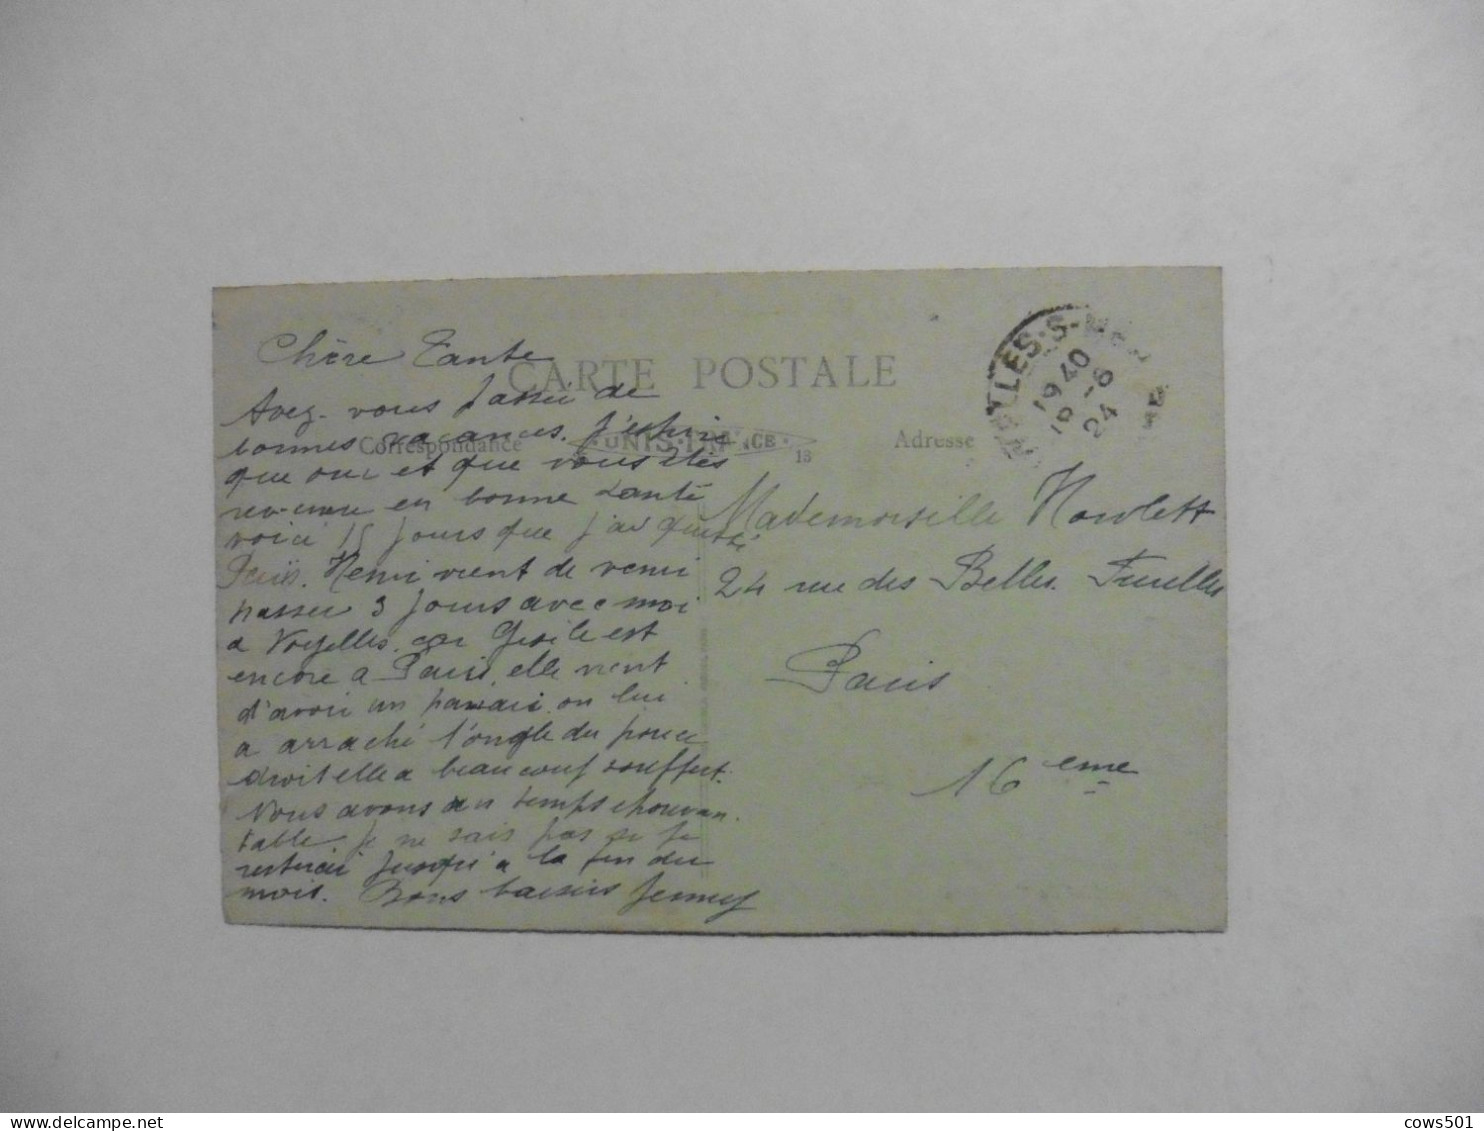 CARTE POSTALE
Correspondance
UNIS FRANCE
13
Adresse
19 40
16
24 - 8
Chère Tante
Avez-vous passé de
bonnes vacances. J'espère
que oui et que vous êtes
revenue en bonne santé
voici 15 jours que j'ai quitté
Paris. Henri vient de venir
passer 3 jours avec moi
a Noyelles, car Gisèle est
encore a Paris, elle vient
d'avoir un panaris, on lui
a arraché l'ongle du pouce
droit elle a beaucoup souffert.
Nous avons un temps épouvan
table je ne sais pas si je
resterai jusqu'a la fin du
mois. Bons baisers Jenny
Mademoiselle Howlett
24 rue des Belles Fuelles
Paris
16 eme
cows501